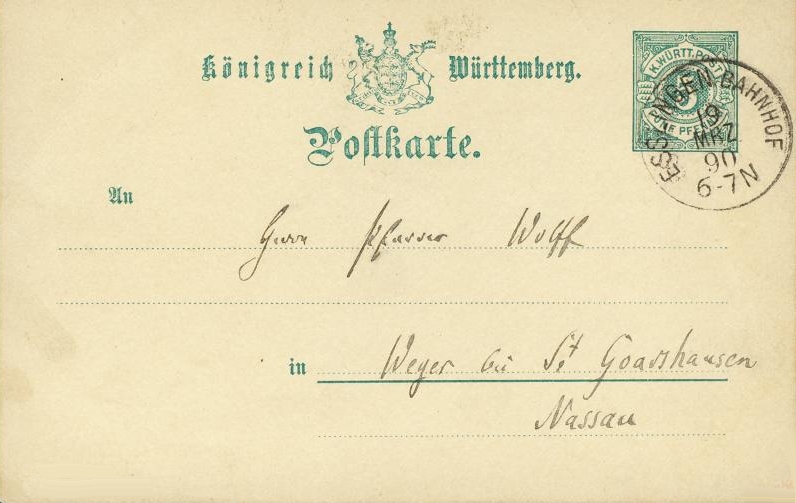 Königreich Württemberg.
Postkarte.
K. WÜRTT. POST
5
FÜNF PFENNIG
ESSLINGEN-BAHNHOF
19
MRZ
90
6-7N
An
Herrn Pfarrer Wolff
in Weyer bei St Goarshausen
Nassau